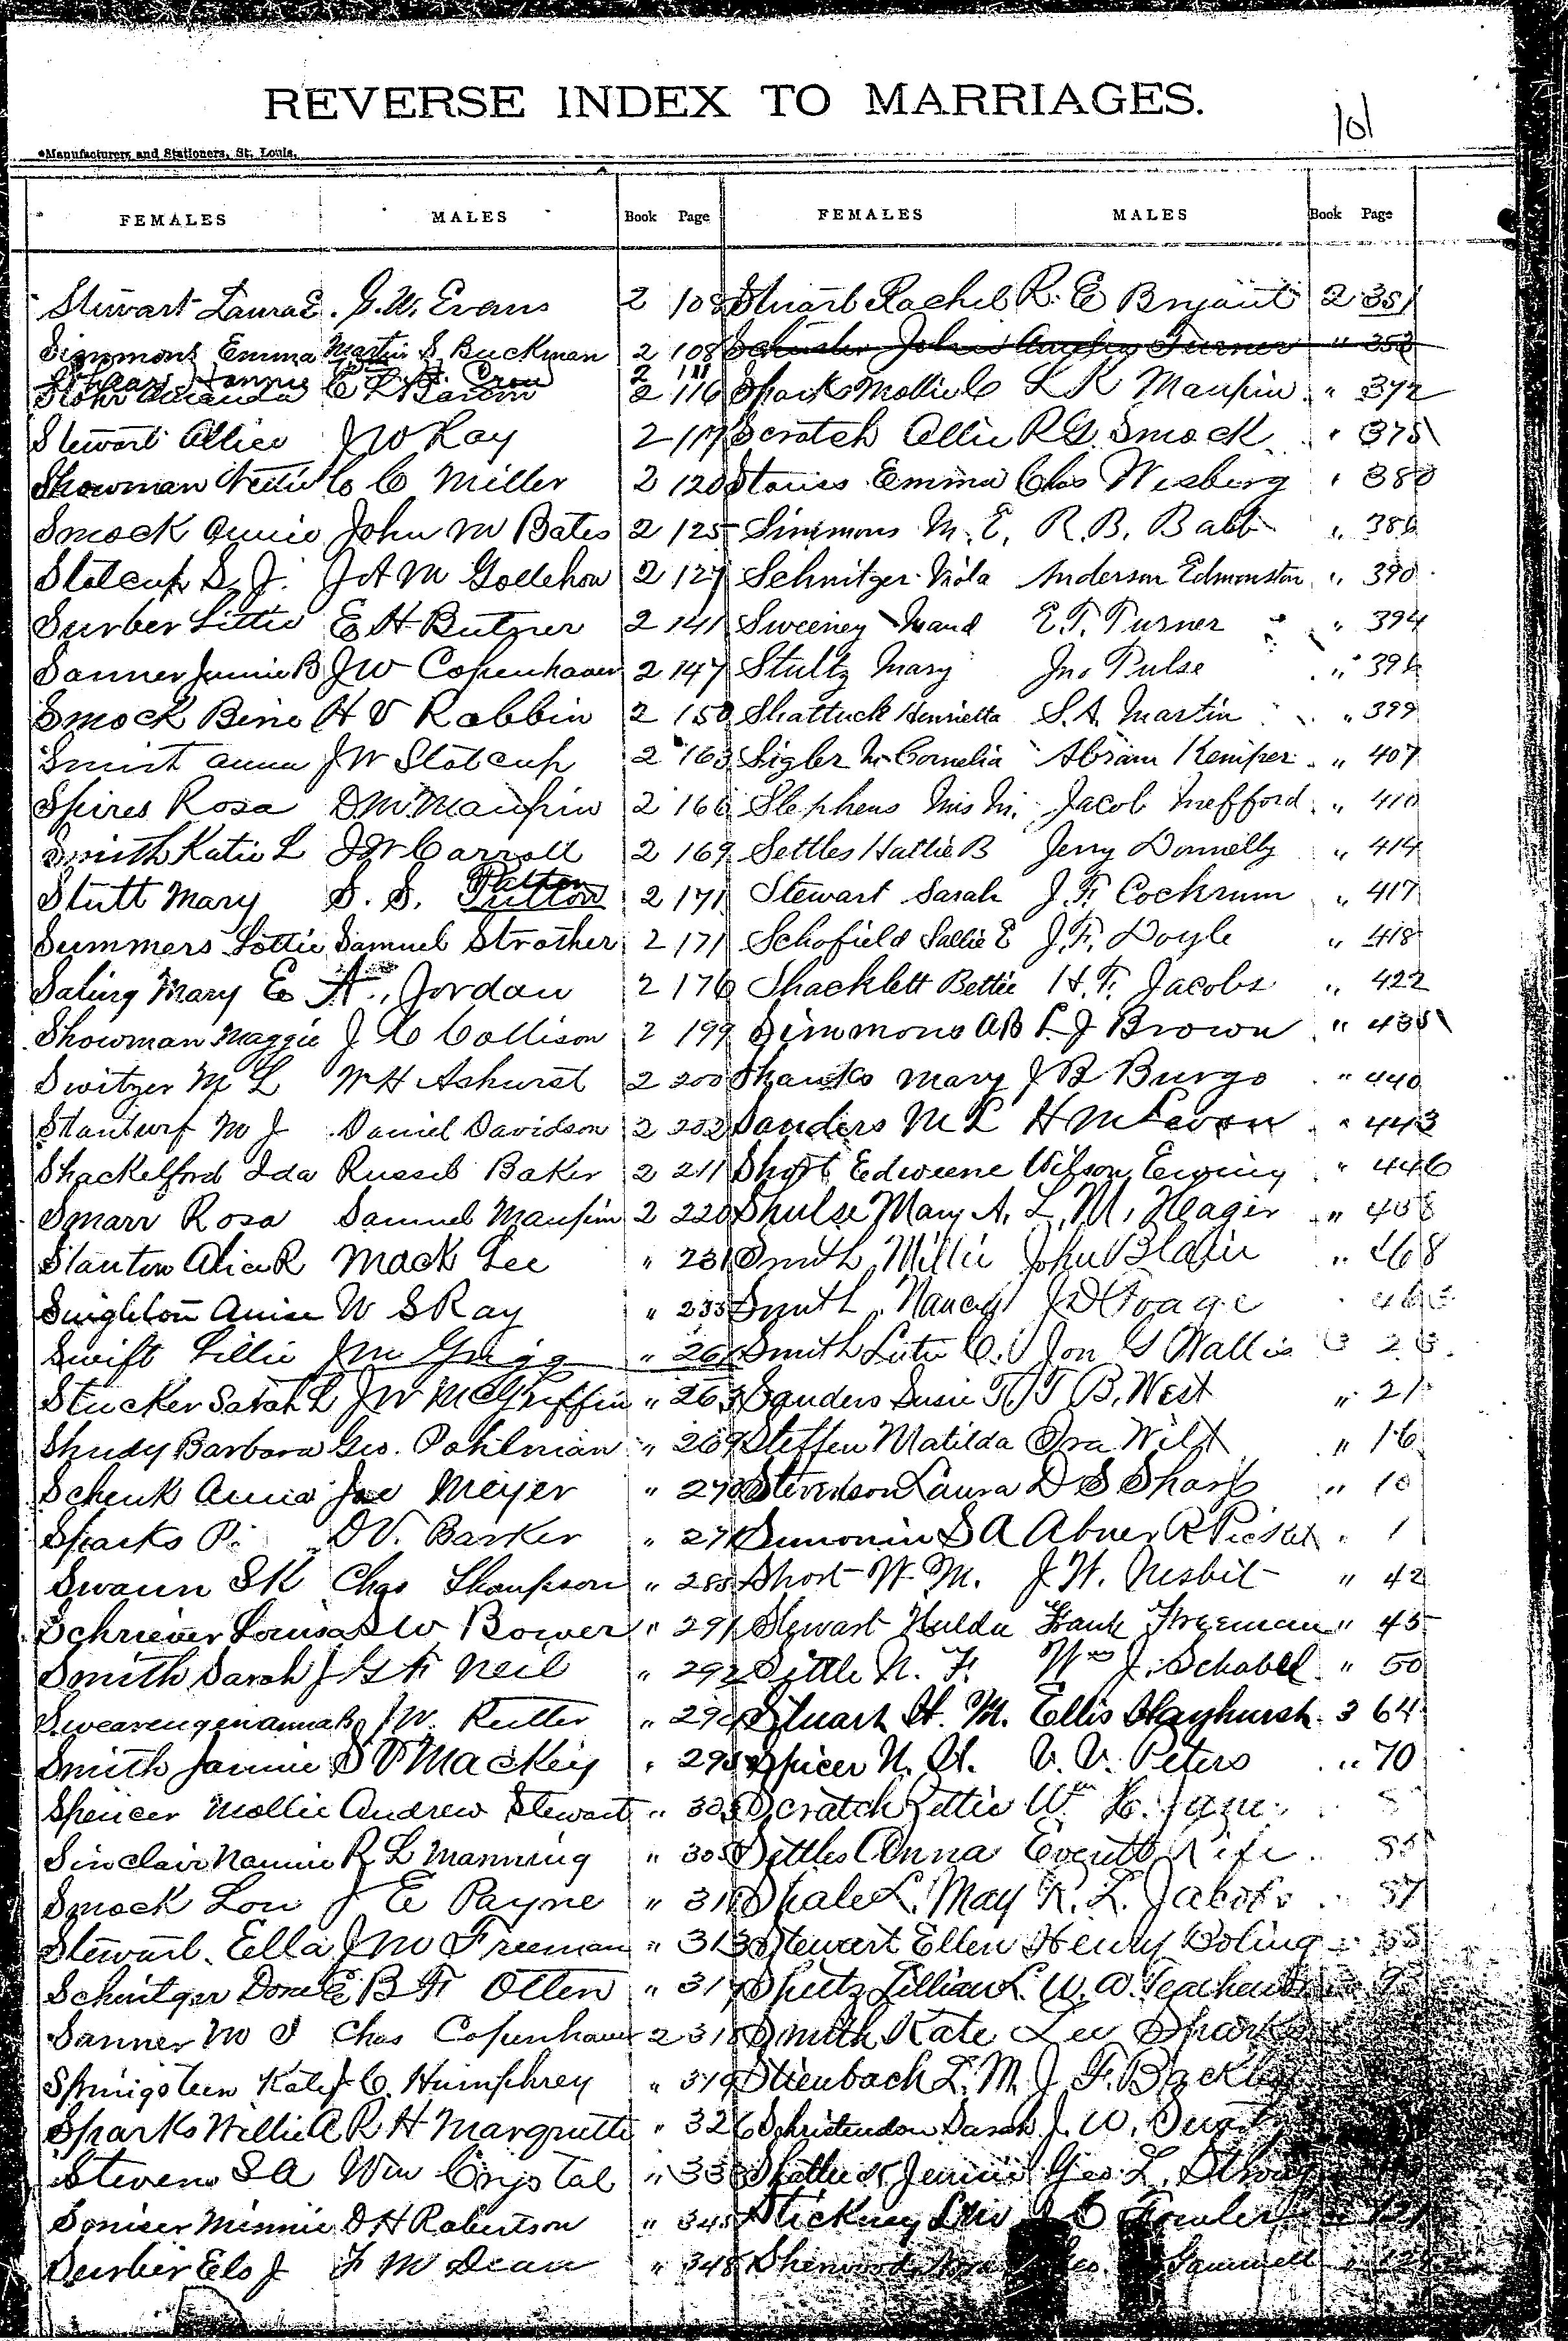 REVERSE INDEX TO MARRIAGES.
101
Manufacturers and Stationers, St. Louis.
FEMALES MALES Book Page FEMALES MALES Book Page
Stewart Laura E. G. W. Evans 2 108 Stuart Rachel R. E Bryant 2 351
Simmons Emma Martin S. Buckman 2 108 Turner " 353
2 111
Stohr Amanda C L 2 116 Spark Mollie C L K Maupin " 372
Stewart Allice J W Ray 2 117 Scratch Ollie R G. Smock " 375
Showman Nettie C C Miller 2 120 Stauss Emma Chas Wesberg " 380
Smock Annie John M Bates 2 125 Simmons M. E. R. B. Babb " 386
Statcup S. J. J A M Gollehon 2 127 Schnitzer Viola Anderson Edmonston " 390
Surber Littie E H Butner 2 141 Sweeney Maud E. T. Turner " 394
Sanner Jennie B J W Copenhaver 2 147 Stultz Mary Jno Pulse " 396
Smock Bine H V Robbin 2 150 Shattuck Henrietta S. A. Martin " 399
Smist Anna J W Statcup 2 163 Sigler M. Cornelia Abram Kemper " 407
Spires Rosa D. M. Maupin 2 166 Stephens Mis M. Jacob Mefford " 410
Smith Katie L J W Carroll 2 169 Settles Hattie B Jerry Donnelly " 414
Stutt Mary S. S. Patton 2 171 Stewart Sarah J. F. Cochrum " 417
Summers Lottie Samuel Strother 2 171 Schofield Sallie E J. F. Doyle " 418
Saling Mary E A. Jordan 2 176 Shacklett Bettie H. F. Jacobs " 422
Showman Maggie J C Collison 2 199 Simmons A B L. J Brown " 435
Switzer M L W H Ashurst 2 200 Shanks Mary J B Burgo " 440
Stanturf M J Daniel Davidson 2 202 Sanders M L H M Levon " 443
Shackelford Ida Russel Baker 2 211 Short Edweene Wilson Ewing " 446
Smarr Rosa Samuel Maupin 2 220 Shulse Mary A. L. M. Heager " 458
Stanton Alice R Mack Lee " 231 Smith Millie John Blair " 468
Singleton Anise W S Ray " 233 Smith Nancy J D
Swift Lillie J M Grigg " 261 Smith Lute C. Jon G Wallis 3
Stucker Sarah L J W McGriffin " 263 Sanders Susie T. T B. West " 21
Shudy Barbara Geo. Pohlman " 269 Steffen Matilda Ora Wilt " 16
Schenk Anna Joe Meyer " 270 Stevenson Laura D S Sharp " 10
Sparks P. D V. Barker " 271 Simonin S A Abner R Picket " 1
Swann S K Chas Thompson " 285 Short W. M. J. W. Nesbit " 42
Schriever Louisa S W Bower " 291 Stewart Hulda Frank Freeman " 45
Smith Sarah J G F Neil " 292 Settle N. F. Wm J. Schabel " 50
Swearengen Anna B J W. Rutter " 294 Stuart H. M. Ellis Hayhurst 3 64
Smith Jannie S V Mackey " 295 Spicer N. H. V. V. Peters " 70
Spencer Mollie Andrew Stewart " 303 Scratch Zettie Wm H.
Sinclair Nannie R L Manning " 305 Settles Anna Everett Rife
Smock Lou J E Payne " 311 Shale L. May R. L. Jacobs 87
Stewart Ella J M Freeman " 313 Stewart Ellen Henry Boling
Schnitger Dora E B F Otten " 317 Sheetz Lillian L. W. A.
Sanner M J Chas Copenhaver 2 318 Smith Kate Lee Sharks
Springsteen Kate J. C. Humphrey " 319 Stienbach L. M. J. F.
Sparks Willie A R H Margrutte " 326 Sarah J. W.
Stevens S A Wm Crystal " 333 Jennie Geo L.
Soniser Minnie D H Robertson " 345 Stickney Fowler
Surber Elo J F M Dean " 348 Sherwood Gammell